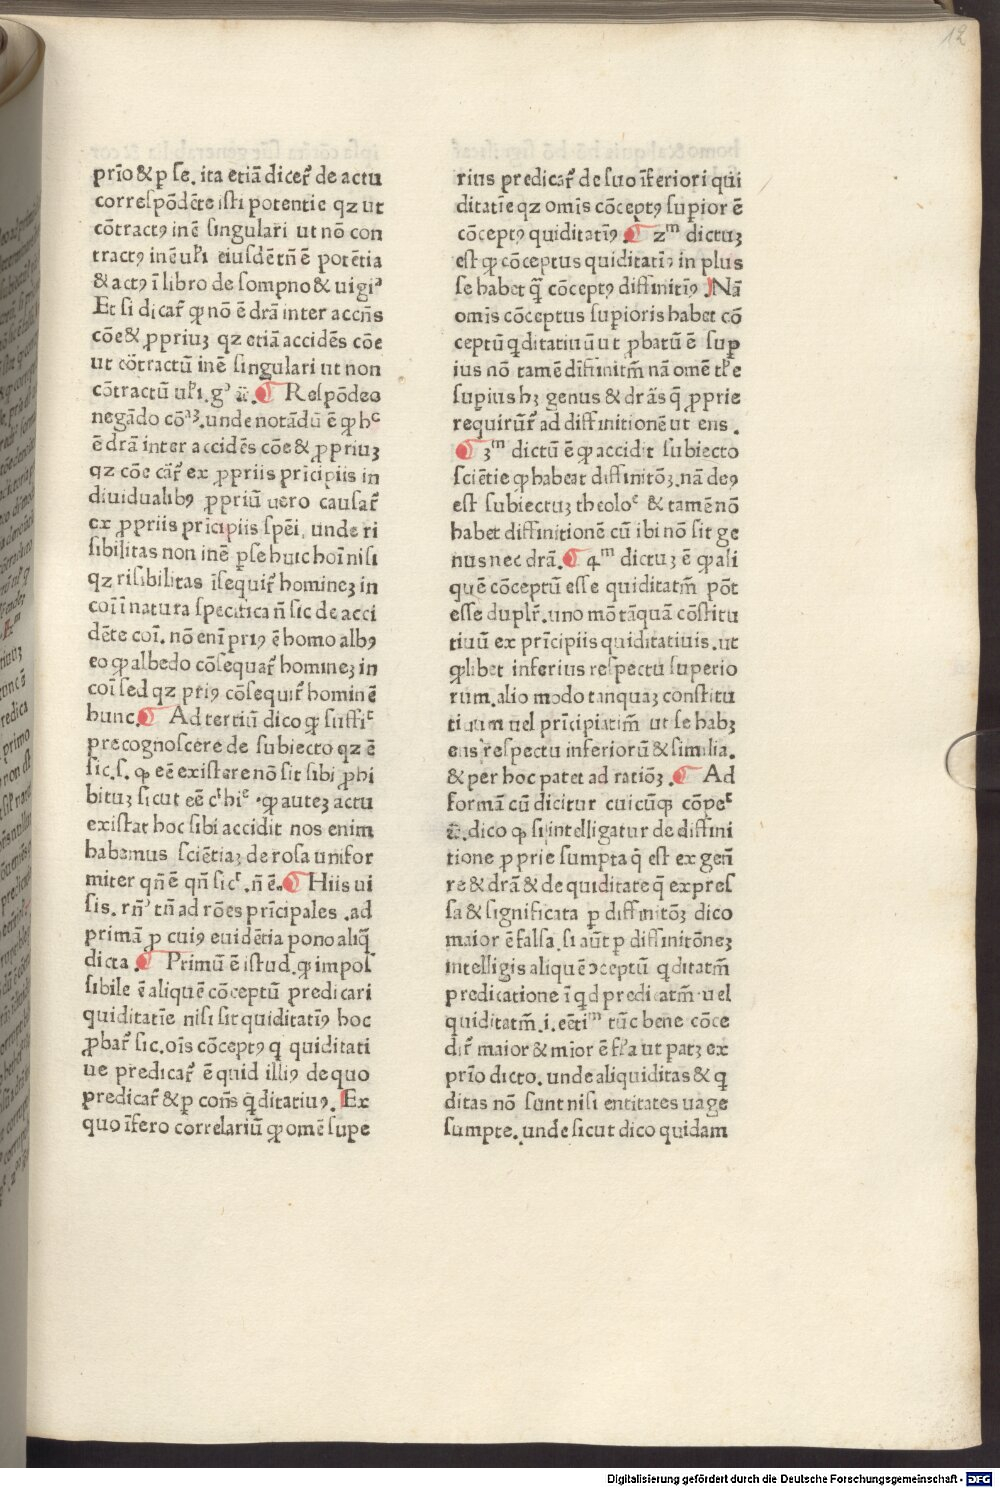 12
prīo & p se. ita etiā dicer̄ de actu
correspōdēte isti potentie qz ut
cōtractꝰ inē singulari ut nō con
tractꝰ inē uł'i eiusdē tn̄ ē potētia
& actꝰ ī libro de sompno & uigiᵃ
Et si dicar̄ ꝙ nō ē drā inter accn̄s
cōe & ꝓpriuꝫ qz etiā accidēs cōe
ut cōtractū inē singulari ut non
cōtractū uł'i. gᵒ ⁊c̄. ¶ Respōdeo
negādo cōⁿᵃꝫ. unde notādū ē ꝙ hᶜ
ē drā inter accidēs cōe & ꝓpriuꝫ
qz cōe cār̄ ex ꝓpriis pricipiis in
diuidualibꝰ ꝓpriū uero causar̄
ex ꝓpriis pricipiis spēi, unde ri
sibilitas non inē p̱se huic hoī nisi
qz risibilitas īsequir̄ homineꝫ in
coī ī natura specifica n̄ sic de acci
dēte coī. nō enī priꝰ ē homo albꝰ
eo ꝙ albedo cōsequar̄ homineꝫ in
coī sed qz priꝰ cōsequir̄ hominē
hunc. ¶ Ad tertiū dico ꝙ suffiᶜ
precognoscere de subiecto qz ē
sic. s. ꝙ eē existere nō sit sibi ꝓhi
bituꝫ sicut eē cʰhiᵉ · ꝙ auteꝫ actu
existat hoc sibi accidit nos enim
habemus sciētiaꝫ de rosa unifor
miter qn̄ ē qn̄ sicʳ. n̄ ē. ¶ Hiis ui
sis. rn̄ᵒ tn̄ ad rōes prīcipales . ad
primā ꝓ cuiꝰ euidētia pono aliq̄
dicta. ¶ Primū ē istud. ꝙ impos
sibile ē aliquē cōceptū predicari
quiditatīe nisi sit quiditatīꝰ hoc
ꝓbar̄ sic. oīs cōceptꝰ q quiditati
ue predicar̄ ē quid illiꝰ de quo
predicar̄ & p con̄s q̄ditatiuꝰ. Ex
quo īfero correlariū ꝙ omē supe
rius predicar̄ de suo īferiori qui
ditatīe qz omīs cōceptꝰ supior ē
cōceptꝰ quiditatīꝰ ¶ 2ᵐ dictuꝫ
est ꝙ cōceptus quiditatīꝰ in plus
se habet q̄ cōceptꝰ diffinitīꝰ. Nā
omīs cōceptus supioris habet cō
ceptū q̄ditatiuū ut ꝓbatū ē sup
ius nō tamē diffinitm̄ nā omē tł'e
supius hꝫ genus & drās q̄ ꝓprie
requirūr̄ ad diffinitionē ut ens .
¶ 3ᵐ dictū ē ꝙ accidit subiecto
sciētie ꝙ habeat diffinitōꝫ. nā deꝰ
est subiectuꝫ theoloᵉ & tamē nō
habet diffinitionē cū ibi nō sit ge
nus nec drā. ¶ 4ᵐ dictuꝫ ē ꝙ ali
quē cōceptū esse quiditatm̄ pōt
esse duplr̄. uno mō tāquā cōstitu
tiuū ex prīcipiis quiditatiuis. ut
q̄libet inferius respectu superio
rum. alio modo tanquaꝫ constitu
tiuum uel prīcipiatīm̄ ut se habꝫ
ens respectu inferiorū & similia.
& per hoc patet ad ratiōꝫ. ¶ Ad
formā cū dicitur cuicūqꝫ cōpeᶜ
⁊c̄. dico ꝙ si intelligatur de diffini
tione ꝓprie sumpta q̄ est ex gen̄
re & drā & de quiditate q̄ expres
sa & significata p diffinitōꝫ dico
maior ē falsa. si aūt p diffinitōneꝫ
intelligis aliquē ↄceptū q̄ditatm̄
predicatione ī q̄d predicatm̄ uel
quiditatm̄. i. eēti ᵐ tūc bene cōce
dir̄ maior & mīor ē fł'a ut patꝫ ex
prīo dicto. unde aliquiditas & q
ditas nō sunt nisi entitates uage
sumpte. unde sicut dico quidam
Digitalisierung gefördert durch die Deutsche Forschungsgemeinschaft - DFG